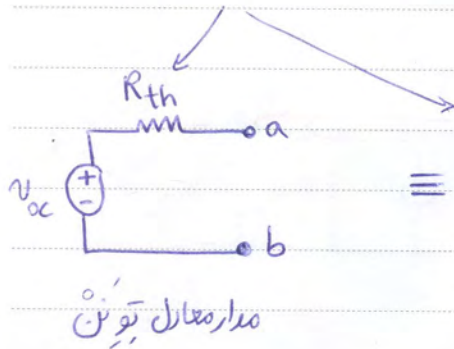 R_th
a
+
-
v_oc
≡
b
مدار معادل تِوِنَنْ